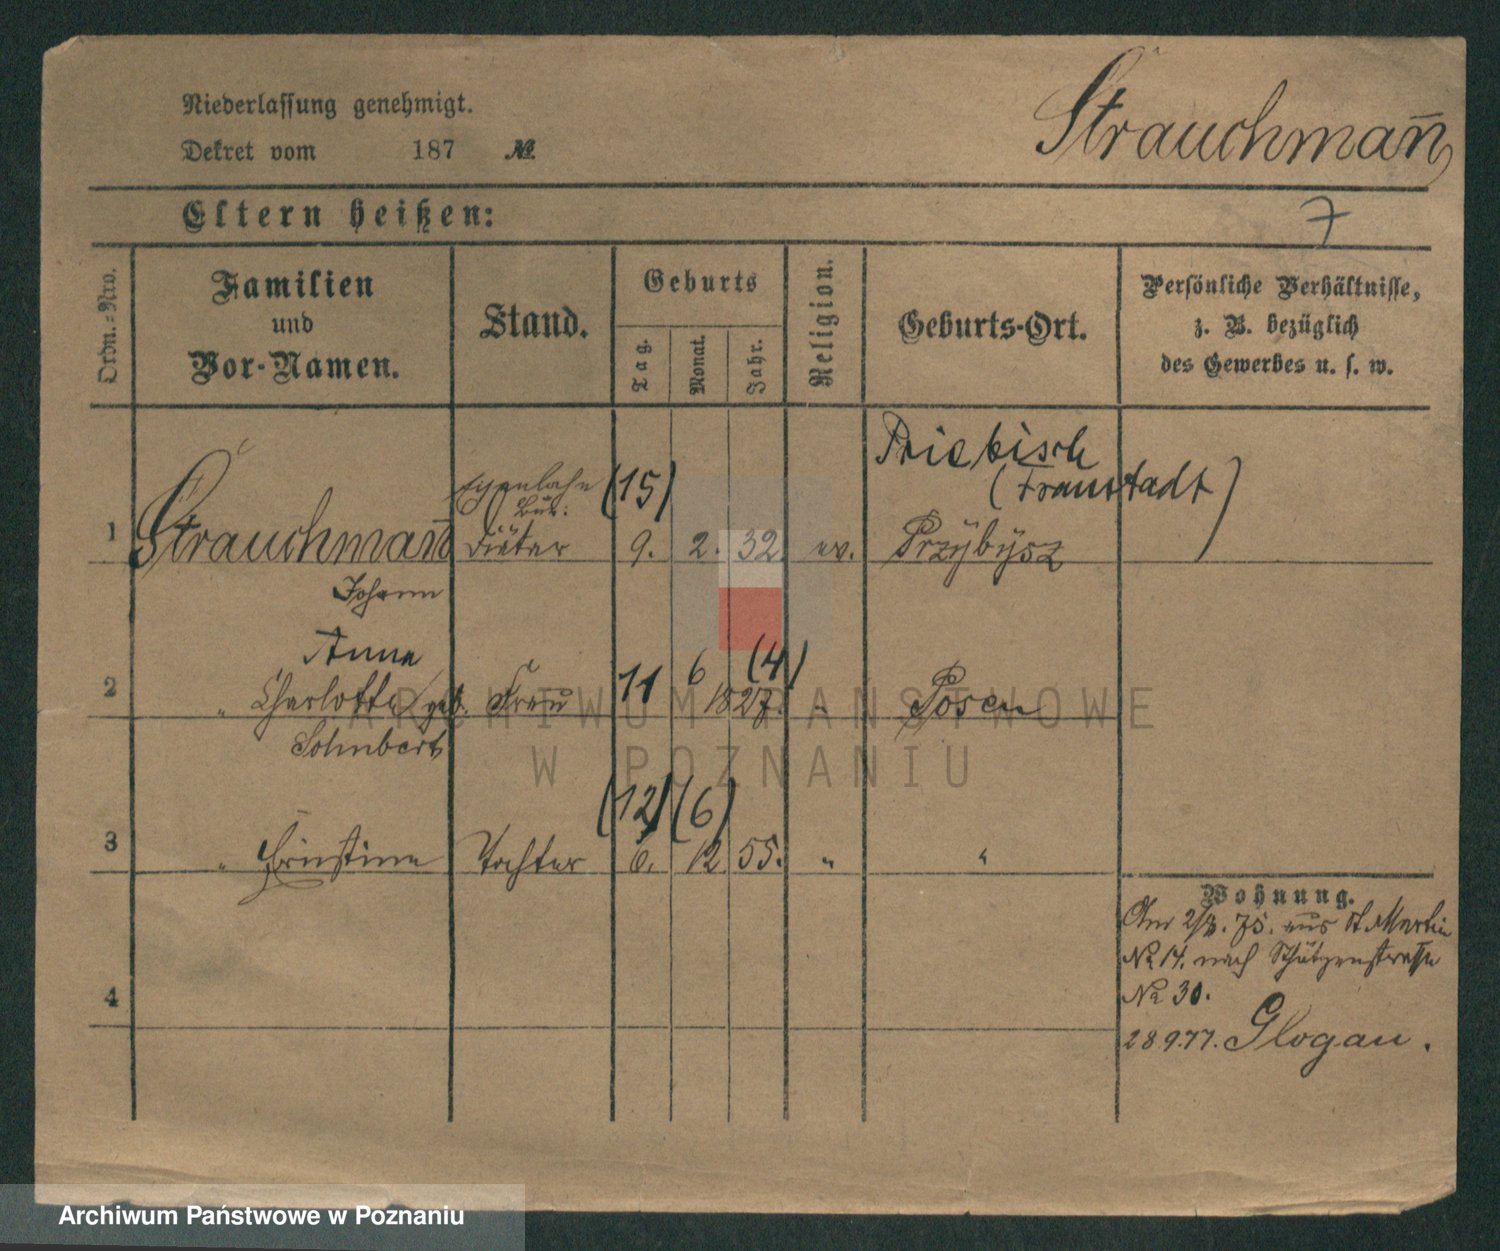 Niederlassung genehmigt.
Dekret vom 187 №
Strauchman̄
Eltern heißen:
7
Ordn.-Nro.
Familien
und
Vor-Namen.
Stand.
Geburts
Tag.
Monat.
Jahr.
Religion.
Geburts-Ort.
Persönliche Verhältnisse,
z. B. bezüglich
des Gewerbes u. s. w.
Priebisch
(Fraustadt)
Eisenbahn (15)
Bür.
1 Strauchman̄ Diätar 9. 2. 32. ev. Przybysz
Johann
Anna 6 (4)
2 " Charlotte geb. Frau 11 1827. " Posen
(12) (6)
3 " Ernstine Tochter 6. 12 55. " "
4
Wohnung.
75. aus St. Martin
№ 14. nach Schützenstrasse
№ 30.
28 9.77. Glogau.
ARCHIWUM PAŃSTWOWE
W POZNANIU
Archiwum Państwowe w Poznaniu